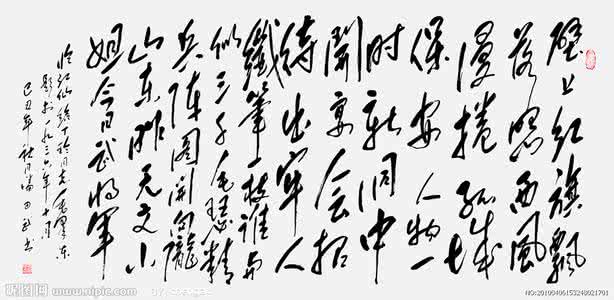 壁上红旗飘
落照西风
漫捲孤城
保安人物一
时新洞中
開宴会招
待出牢人
纖筆一枝谁与
似三千毛瑟精
兵阵图開向隴
山东昨天文小
姐今日武将军
临江仙給丁玲同志毛泽东
一九三六年
己丑年秋月
昵图网 www.nipic.com
NO:20100406153248021701